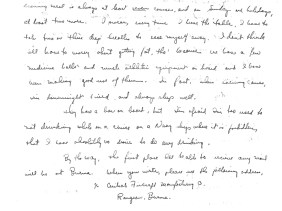 evening meal is always at least seven courses, and on Sundays and holidays,
at least two more. I swear, every time I leave the table, I have to
take two or three deep breaths to ease myself away. I don't think
I'll have to worry about getting fat, tho' because we have a few
"medicine balls" and much athletic equipment on board and I have
been making good use of them. In fact, when evening comes,
I'm downright tired and always sleep well.
They have a bar on board, but I'm afraid I'm too used to
not drinking while on a cruise on a Navy ship where it is forbidden,
that I have absolutely no desire to do any drinking.
By the way, the first place I'll be able to receive any mail
will be at Burma. When you write, please use the following address,
% Central Aircraft Manufacturing Co.
Rangoon, Burma.